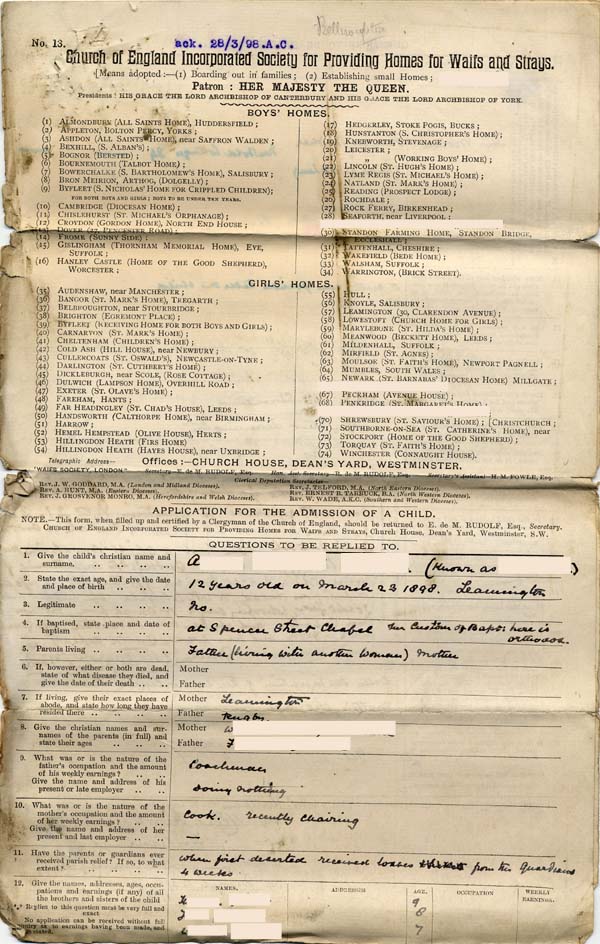 Bellbroughton
No. 13.
ack. 28/3/98. A.C.
Church of England Incorporated Society for Providing Homes for Waifs and Strays.
[Means adopted:—(1) Boarding out in families; (2) Establishing small Homes;
Patron: HER MAJESTY THE QUEEN.
Presidents: HIS GRACE THE LORD ARCHBISHOP OF CANTERBURY AND HIS GRACE THE LORD ARCHBISHOP OF YORK.
BOYS' HOMES.
(1) ALMONDBURY (ALL SAINTS HOME), HUDDERSFIELD;
(2) APPLETON, BOLTON PERCY, YORKS;
(3) ASHDON (ALL SAINTS' HOME), near SAFFRON WALDEN;
(4) BEXHILL, (S. ALBAN'S);
(5) BOGNOR (BERSTED);
(6) BOURNEMOUTH (TALBOT HOME);
(7) BOWERCHALKE (S. BARTHOLOMEW'S HOME), SALISBURY;
(8) BRON MEIRION, ARTHOG, (DOLGELLY);
(9) BYFLEET (S. NICHOLAS' HOME FOR CRIPPLED CHILDREN);
FOR BOTH BOYS AND GIRLS; BOYS TO BE UNDER TEN YEARS.
(10) CAMBRIDGE (DIOCESAN HOME);
(11) CHISLEHURST (ST. MICHAEL'S ORPHANAGE);
(12) CROYDON (GORDON HOME), NORTH END HOUSE;
DOVER (27, PENCESTER ROAD);
(14) FROME (SUNNY SIDE);
(15) GISLINGHAM (THORNHAM MEMORIAL HOME), EYE,
SUFFOLK;
(16) HANLEY CASTLE (HOME OF THE GOOD SHEPHERD),
WORCESTER;
(17) HEDGERLEY, STOKE POGIS, BUCKS;
(18) HUNSTANTON (S. CHRISTOPHER'S HOME);
(19) KNEBWORTH, STEVENAGE;
(20) LEICESTER;
(21) " (WORKING BOYS' HOME);
(22) LINCOLN (ST. HUGH'S HOME);
(23) LYME REGIS (ST. MICHAEL'S HOME);
(24) NATLAND (ST. MARK'S HOME);
(25) READING (PROSPECT LODGE);
(26) ROCHDALE;
(27) ROCK FERRY, BIRKENHEAD;
(28) SEAFORTH, near LIVERPOOL;
(30) STANDON FARMING HOME, STANDON BRIDGE,
ECCLESHALL;
(31) TATTENHALL, CHESHIRE;
(32) WAKEFIELD (BEDE HOME);
(33) WALSHAM, SUFFOLK;
(34) WARRINGTON, (BRICK STREET).
GIRLS' HOMES.
(35) AUDENSHAW, near MANCHESTER;
(36) BANGOR (ST. MARK'S HOME), TREGARTH;
(37) BELBROUGHTON, near STOURBRIDGE;
(38) BRIGHTON (EGREMONT PLACE);
(39) BYFLEET (RECEIVING HOME FOR BOTH BOYS AND GIRLS);
(40) CARNARVON (ST. MARK'S HOME);
(41) CHELTENHAM (CHILDREN'S HOME);
(42) COLD ASH (HILL HOUSE), near NEWBURY;
(43) CULLERCOATS (ST. OSWALD'S), NEWCASTLE-ON-TYNE;
(44) DARLINGTON (ST. CUTHBERT'S HOME);
(45) DICKLEBURGH, near SCOLE, (ROSE COTTAGE);
(46) DULWICH (LAMPSON HOME), OVERHILL ROAD;
(47) EXETER (ST. OLAVE'S HOME);
(48) FAREHAM, HANTS;
(49) FAR HEADINGLEY (ST. CHAD'S HOUSE), LEEDS;
(50) HANDSWORTH (CALTHORPE HOME), near BIRMINGHAM;
(51) HARROW;
(52) HEMEL HEMPSTEAD (OLIVE HOUSE), HERTS;
(53) HILLINGDON HEATH (FIRS HOME)
(54) HILLINGDON HEATH (HAYES HOUSE), near UXBRIDGE;
(55) HULL;
(56) KNOYLE, SALISBURY;
(57) LEAMINGTON (30, CLARENDON AVENUE);
(58) LOWESTOFT (CHURCH HOME FOR GIRLS);
(59) MARYLEBONE (ST. HILDA'S HOME);
(60) MEANWOOD (BECKETT HOME), LEEDS;
(61) MILDENHALL, SUFFOLK;
(62) MIRFIELD (ST. AGNES);
(63) MOULSOE (ST. FAITH'S HOME), NEWPORT PAGNELL;
(64) MUMBLES, SOUTH WALES;
(65) NEWARK (ST. BARNABAS' DIOCESAN HOME) MILLGATE;
(67) PECKHAM (AVENUE HOUSE);
(68) PENKRIDGE (ST. MARGARET'S HOME);
(70) SHREWSBURY (ST. SAVIOUR'S HOME); [CHRISTCHURCH;
(71) SOUTHBOURNE-ON-SEA (ST. CATHERINE'S HOME), near
(72) STOCKPORT (HOME OF THE GOOD SHEPHERD);
(73) TORQUAY (ST. FAITH'S HOME)
(74) WINCHESTER (CONNAUGHT HOUSE).
Telegraphic Address—
"WAIFS SOCIETY, LONDON."
Offices:—CHURCH HOUSE, DEAN'S YARD, WESTMINSTER.
Secretary—E. de M. RUDOLF, Esq. Hon. Asst. Secretary—R. de M. RUDOLF, Esq. Secretary's Assistant—H. M. FOWLE, Esq.
Clerical Deputation Secretaries—
REV. J. W. GODDARD, M.A. (London and Midland Dioceses).
REV. A. HUNT, M.A. (Eastern Dioceses).
REV. J. GROSVENOR MONRO, M.A. (Herefordshire and Welsh Dioceses).
REV. J. TELFORD, M.A. (North Eastern Dioceses).
REV. ERNEST R. TARBUCK, B.A. (North Western Dioceses).
REV. W. WADE, A.K.C. (Southern and Western Dioceses).
APPLICATION FOR THE ADMISSION OF A CHILD.
NOTE.—This form, when filled up and certified by a Clergyman of the Church of England, should be returned to E. de M. RUDOLF, Esq., Secretary.
CHURCH OF ENGLAND INCORPORATED SOCIETY FOR PROVIDING HOMES FOR WAIFS AND STRAYS, Church House, Dean's Yard, Westminster, S.W.
QUESTIONS TO BE REPLIED TO.
1. Give the child's christian name and
surname.
A (Known as )
2. State the exact age, and give the date
and place of birth
12 years old on March 23 1898. Leamington
3. Legitimate
No.
4. If baptised, state place and date of
baptism
at Spencer Street Chapel
orthodox
5. Parents living
Father (living with another woman) Mother
6. If, however, either or both are dead,
state of what disease they died, and
give the date of their death
Mother
Father
7. If living, give their exact places of
abode, and state how long they have
resided there
Mother Leamington
Father Rugby
8. Give the christian names and sur-
names of the parents (in full) and
state their ages
Mother W
Father F
9. What was or is the nature of the
father's occupation and the amount
of his weekly earnings?
Give the name and address of his
present or late employer
Coachman
Doing nothing
10. What was or is the nature of the
mother's occupation and the amount
of her weekly earnings?
Give the name and address of her
present and last employer
Cook. recently chairing
—
11. Have the parents or guardians ever
received parish relief? If so, to what
extent?
when first deserted received loaves from the guardians
4 weeks
12. Give the names, addresses, ages, occu-
pations and earnings (if any) of all
the brothers and sisters of the child
*** Replies to this question must be very full and
exact
No application can be received without full
inquiry as to earnings having been made, and
NAMES. ADDRESSES. AGE. OCCUPATION. WEEKLY
EARNINGS.
9
8
7